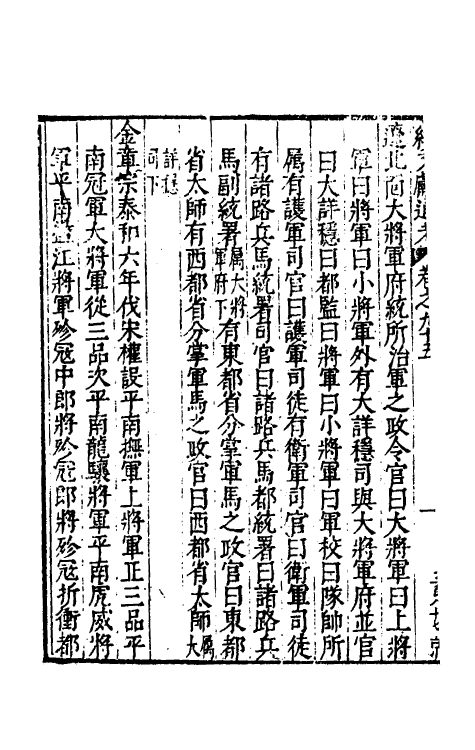 續文獻通考 卷之九十五 一
遼北面大將軍府統所治軍之政令官曰大將軍曰上將
軍曰將軍曰小將軍外有大詳穩司與大將軍府並官
曰大詳穩曰都監曰將軍曰小將軍曰軍校曰隊帥所
属有護軍司官曰護軍司徒有衛軍司官曰衛軍司徒
有諸路兵馬統署司官曰諸路兵馬都統署曰諸路兵
馬副統署属大將軍府下有東都省分掌軍馬之政官曰東都
省太師有西都省分掌軍馬之政官曰西都省太師属大
詳穩司下
金章宗泰和六年伐宋權設平南撫軍上將軍正三品平
南冠軍大將軍從三品次平南龍驤將軍平南虎威將
軍平南盪江將軍殄冦中郎將殄冦郎將殄冦折衝都